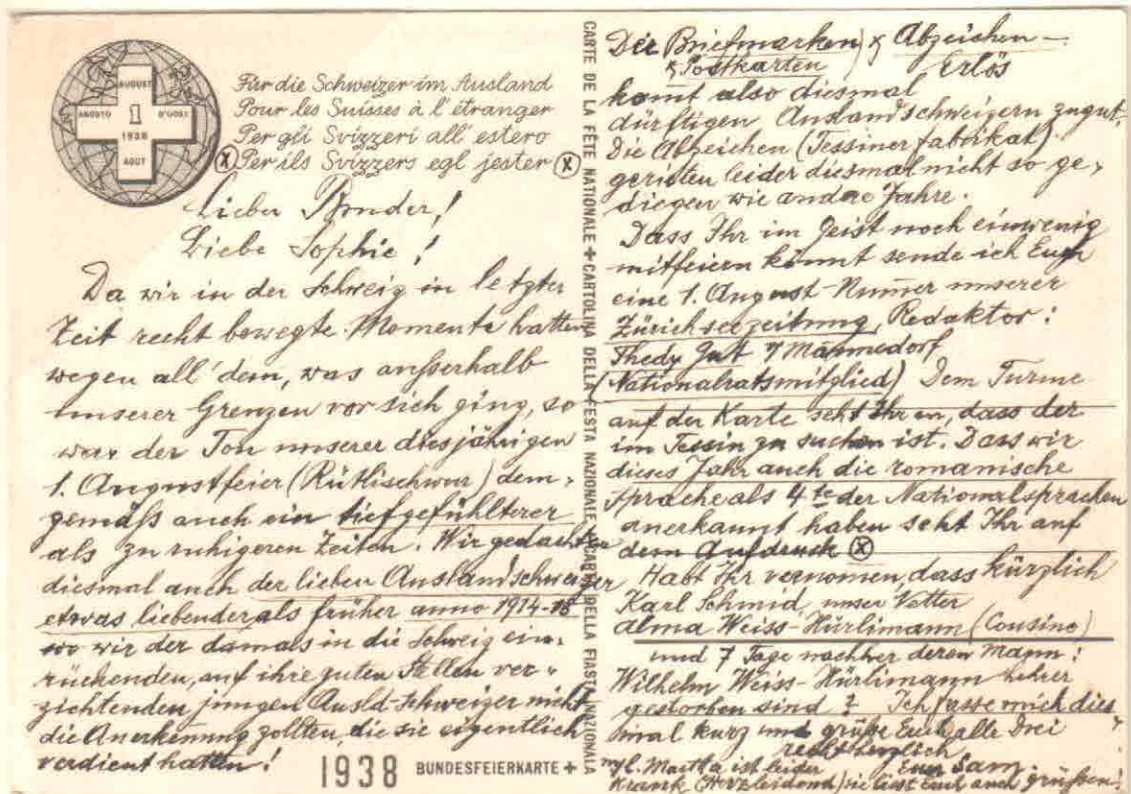 AUGUST
AGOSTO 1 D'UOST
1938
AOUT
Für die Schweizer im Ausland
Pour les Suisses à l'étranger
Per gli Svizzeri all'estero
(X) Per ils Svizzers egl jester (X)
Lieber Bruder!
Liebe Sophie!
Da wir in der Schweiz in letzter
Zeit recht bewegte Momente hatten
wegen all' dem, was außerhalb
unserer Grenzen vor sich ging, so
war der Ton unserer diesjährigen
1. Augustfeier (Rütlischwur) dem-
gemäß auch ein tiefgefühlterer
als zu ruhigeren Zeiten. Wir gedachten
diesmal auch der lieben Auslandschweizer
etwas liebender als früher anno 1914-18
wo wir der damals in die Schweiz ein-
rückenden, auf ihre guten Stellen ver-
zichtenden jungen Ausld-Schweizer nicht
die Anerkennung zollten, die sie eigentlich
verdient hatten!
1938 BUNDESFEIERKARTE +
CARTE DE LA FÊTE NATIONALE + CARTOLINA DELLA FESTA NAZIONALE + CARTA DELLA FIASTA NAZIONALA
Der Briefmarken) & Abzeichen-
& Postkarten Erlös
komt also diesmal
dürftigen Auslandschweizern zugut.
Die Abzeichen (Tessiner fabrikat)
gerieten leider diesmal nicht so ge-
diegen wie andre Jahre.
Dass Ihr im Geist noch einwenig
mitfeiern könnt sende ich Euch
eine 1. August-Numer unserer
Zürichseezeitung, Redaktor:
Thedy Gut Männedorf
(Nationalratsmitglied) Dem Turme
auf der Karte seht Ihr an, dass der
im Tessin zu suchen ist. Dass wir
dieses Jahr auch die romanische
Sprache als 4te der Nationalsprachen
anerkannt haben seht Ihr auf
dem Aufdruck (X)
Habt Ihr vernomen, dass kürzlich
Karl Schmid, unser Vetter
Alma Weiss-Hürlimann (Cousine)
und 7 Tage nachher deren Mann:
Wilhelm Weiss-Hürlimann Lehrer
gestorben sind? Ich fasse mich dies
mal kurz und grüße Euch alle Drei
recht herzlich
Euer Sam.
My l. Martha ist leider
krank (Herzleidend) sie lässt Euch auch grüßen!